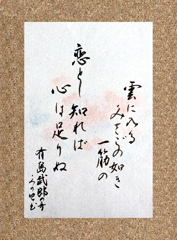 雲に入る
みさごの如き
一筋の
恋とし知れば
心は足りぬ
有島武郎の